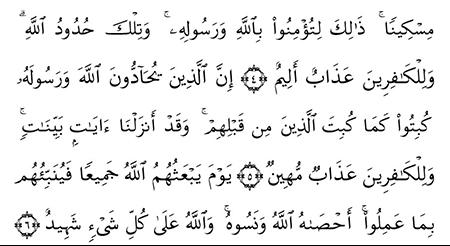 مِسْكِينًا ۚ ذَٰلِكَ لِتُؤْمِنُوا۟ بِٱللَّهِ وَرَسُولِهِۦ ۚ وَتِلْكَ حُدُودُ ٱللَّهِ ۗ
وَلِلْكَـٰفِرِينَ عَذَابٌ أَلِيمٌ ﴿٤﴾ إِنَّ ٱلَّذِينَ يُحَآدُّونَ ٱللَّهَ وَرَسُولَهُۥ
كُبِتُوا۟ كَمَا كُبِتَ ٱلَّذِينَ مِن قَبْلِهِمْ ۚ وَقَدْ أَنزَلْنَآ ءَايَـٰتٍۭ بَيِّنَـٰتٍ ۚ
وَلِلْكَـٰفِرِينَ عَذَابٌ مُّهِينٌ ﴿٥﴾ يَوْمَ يَبْعَثُهُمُ ٱللَّهُ جَمِيعًا فَيُنَبِّئُهُم
بِمَا عَمِلُوٓا۟ ۚ أَحْصَىٰهُ ٱللَّهُ وَنَسُوهُ ۚ وَٱللَّهُ عَلَىٰ كُلِّ شَىْءٍ شَهِيدٌ ﴿٦﴾